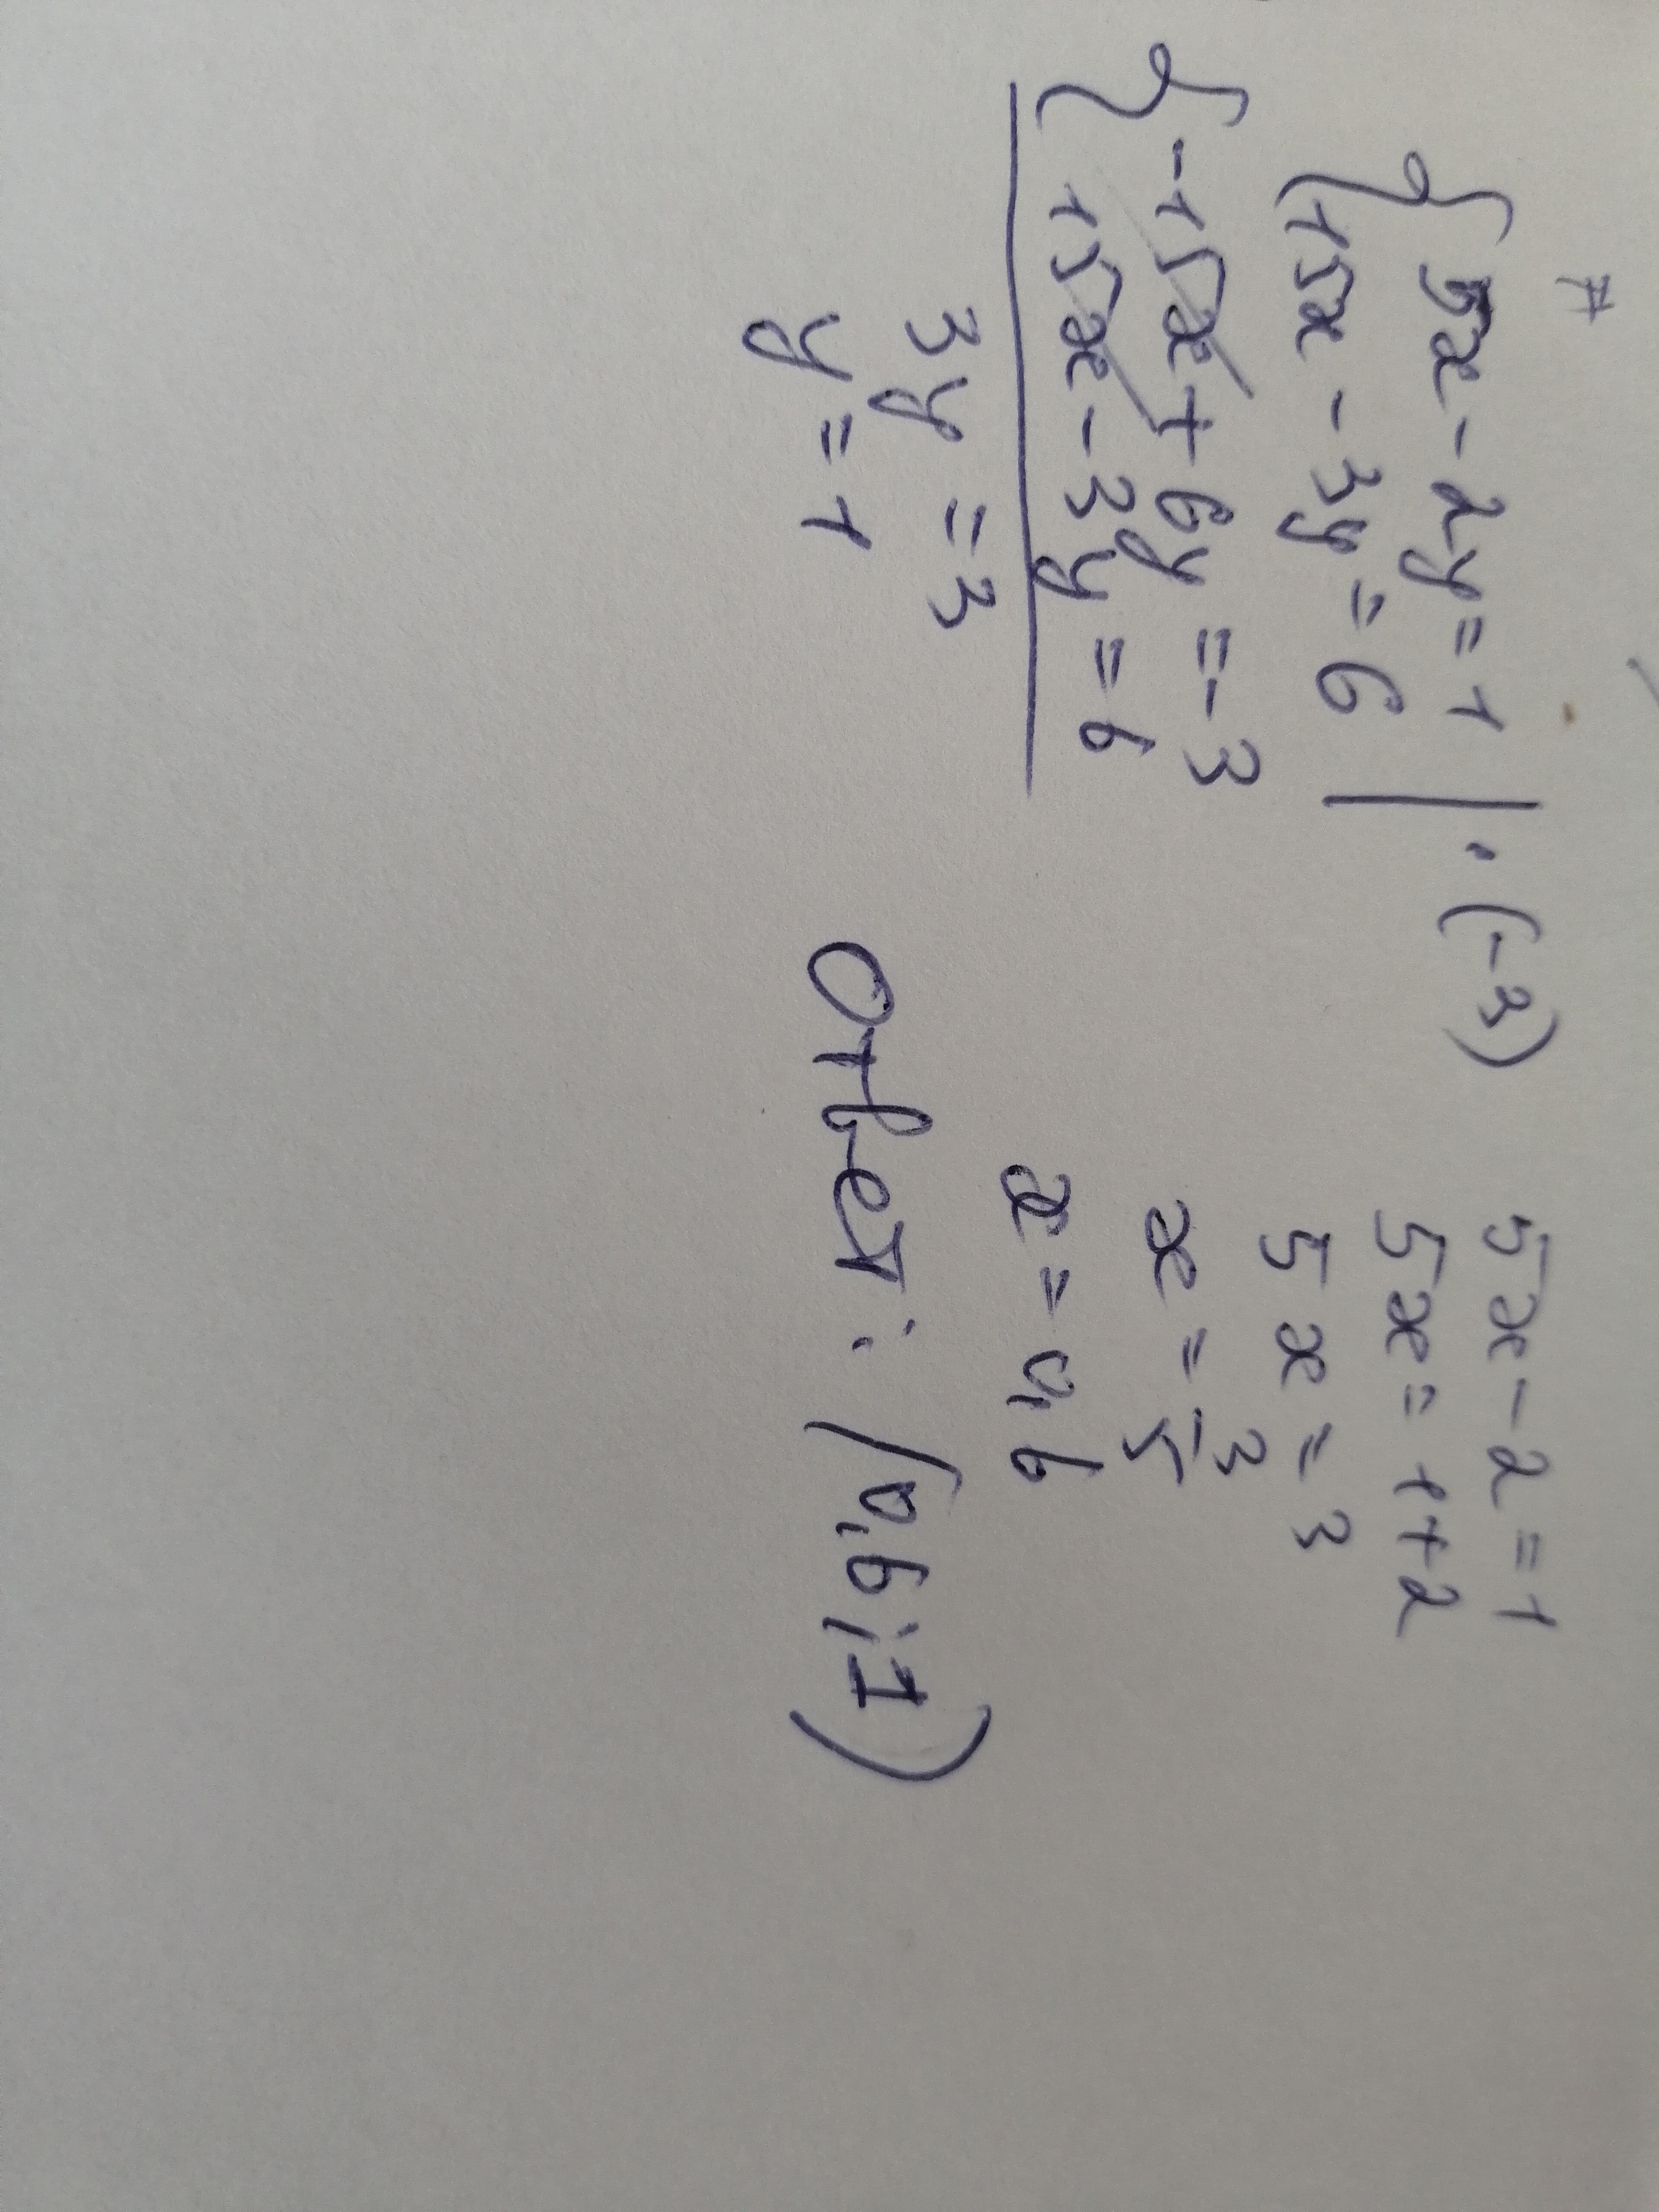 #
{ 5x - 2y = 1 | · (-3)
{ 15x - 3y = 6
{ -15x + 6y = -3
{ 15x - 3y = 6
3y = 3
y = 1
5x - 2 = 1
5x = 1+2
5x = 3
x = 3/5
x = 0,6
Ответ: (0,6; 1)